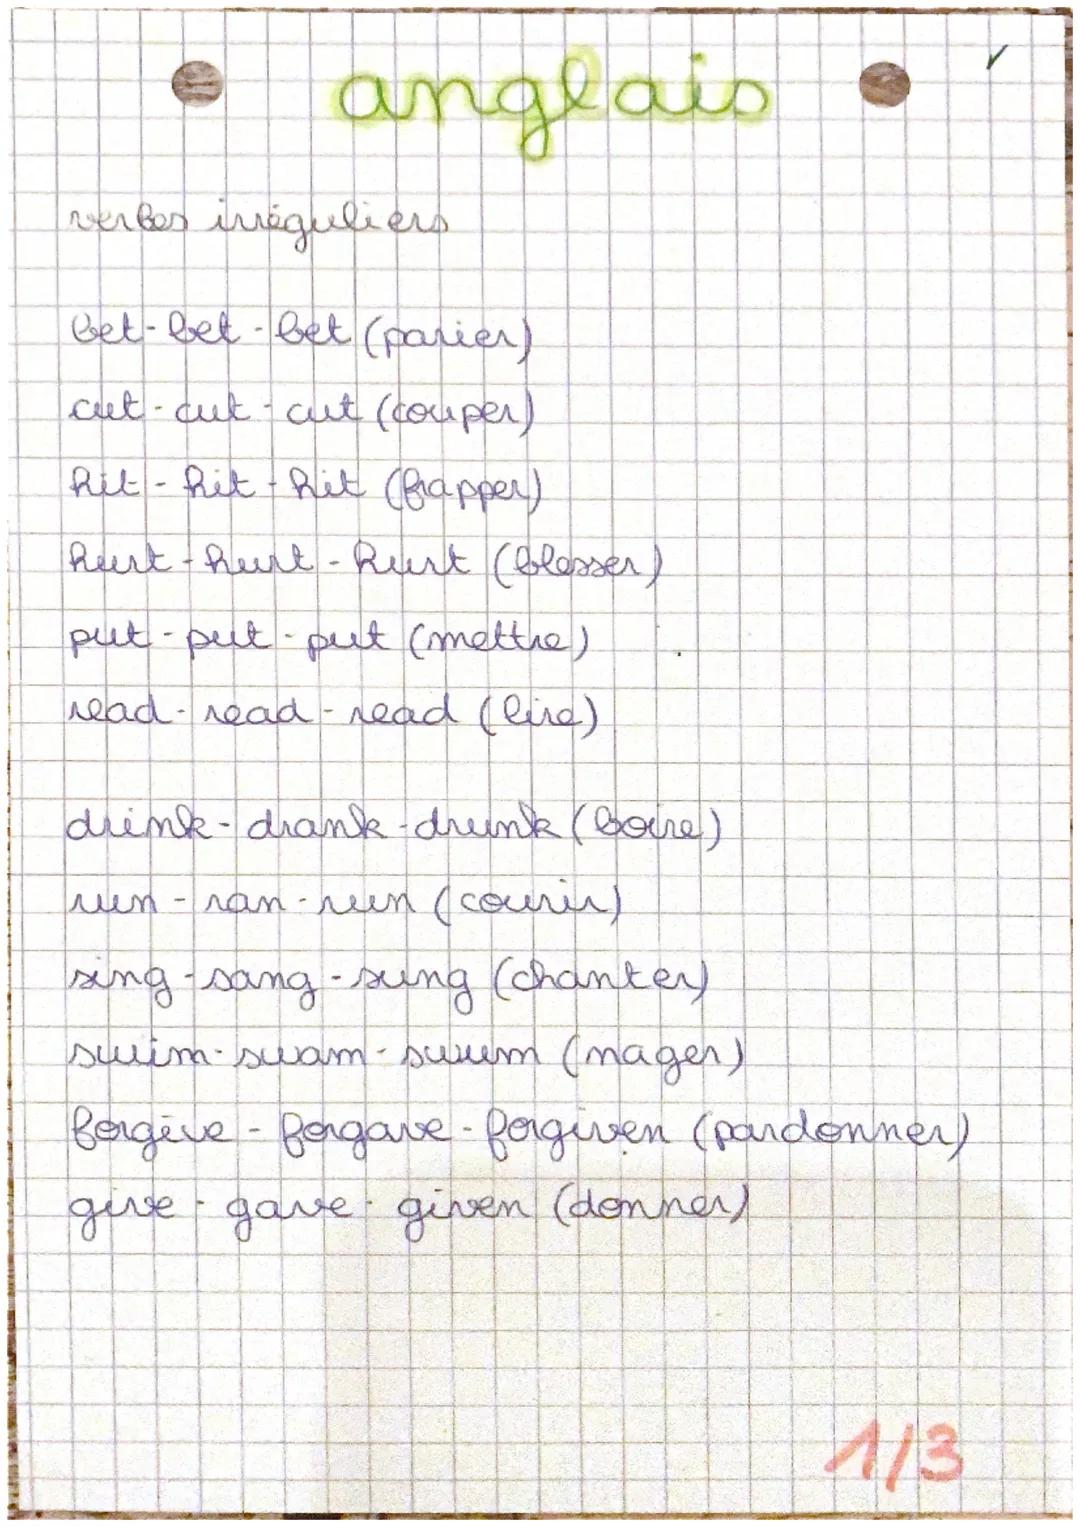 anglais
verbes irréguliers
bet - bet - bet (parier)
cut - cut - cut (couper)
hit - hit - hit (frapper)
hurt - hurt - hurt (blesser)
put - put - put (mettre)
read - read - read (lire)
drink - drank - drunk (boire)
run - ran - run (courir)
sing - sang - sung (chanter)
swim - swam - swum (nager)
forgive - forgave - forgiven (pardonner)
give - gave - given (donner)
1/3